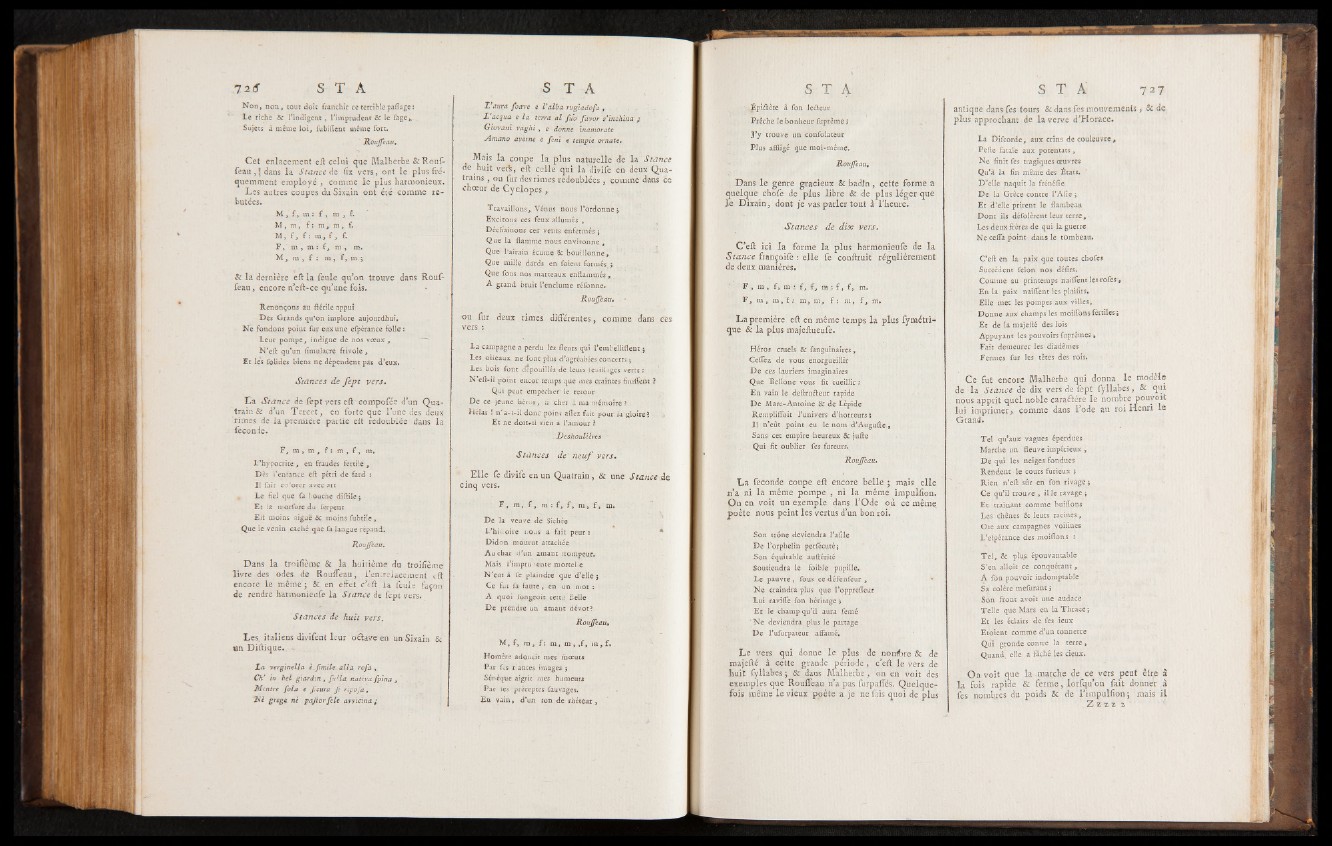 726 S T A
Non, non, tout doit franchir ce terrible paſſage:
Le riche & l'indigent, l'imprudent & le ſage,
Sujets à même loi, ſubiſſent même ſort.
Rouſſeau.
Cet enlacement eſt celui que Malherbe & Rouſ-
ſeau, dans la Stance de ſix vers, ont le plus fré-
quemment employé, comme le plus harmonieux.
Les autres coupes du Sixain ont été comme re-
butées.
M, f, m: f, m, f.
M, m, f: m, m, f.
M, f, f: m, f, f.
F, m, m: f, m, m.
M, m, f: m, f, m;
& la dernière eſt la ſeule qu'on trouve dans Rouſ-
ſeau, encore n'eſt-ce qu'une fois.
Renonçons au ſtérile appui
Des Grands qu'on implore aujourdhui,
Ne fondons point ſur eux une eſpérance folle:
Leur pompe, indigne de nos vœux,
N'eſt qu'un ſimulacre frivole,
Et les ſolides biens ne dépendent pas d'eux.
Stances de ſept vers.
La Stance de ſept vers eſt compoſée d'un Qua-
train & d'un Tercet, en ſorte que l'une des deux
rimes de la première partie eſt redoublée dans la
ſeconde.
F, m, m, f: m, f, m.
L'hypocrite, en fraudes fertile,
Dès l'enfance eſt pétri de fard:
Il ſait colorer avec art
Le fiel que ſa bouche diſtile;
Et la morſure du ſerpent
Eſt moins aiguë & moins ſubtile,
Que le venin caché que ſa langue répand.
Rouſſeau.
Dans la troiſième & la huitième du troiſième
livre des odes de Rouſſeau, l'entrelacement eſt
encore le même; & en effet c'eſt la ſeule façon
de rendre harmonieuſe la Stance de ſept vers.
Stances de huit vers.
Les italiens diviſent leur octave en un Sixain &
un Diſtique.
La verginella è ſimile alla roſa,
Ch' in bel giardin, ſu la nativa ſpina,
Mentre ſola e ſicura ſi ripoſa,
Nè gregge nè paſtor ſe le avvicina;
S T A
L'aura ſoave e l'alba rugiadoſa,
L'acqua e la terra al ſuo favor s'inchina;
Giovani vaghi, e donne inamorate
Amano averne e ſeni e tempie ornate.
Mais la coupe la plus naturelle de la Stance
de huit vers, eſt celle qui la diviſe en deux Qua-
trains, ou ſur des rimes redoublées, comme dans ce
chœur de Cyclopes,
Travaillons, Vénus nous l'ordonne;
Excitons ces feux allumés,
Déchaînons ces vents enfermés;
Que la flamme nous environne,
Que l'airain écume & bouillonne,
Que mille dards en ſoient formés;
Que ſous nos marteaux enflammés,
A grand bruit l'enclume réſonne.
Rouſſeau.
ou ſur deux rimes différentes, comme dans ces
vers:
La campagne a perdu les fleurs qui l'embelliſſent;
Les oiſeaux ne font plus d'agréables concerts;
Les bois ſont dépouillés de leurs feuillages verts:
N'eſt-il point encor temps que mes craintes finiſſent?
Qui peut empêcher le retour
De ce jeune héros, ſi cher à ma mémoire?
Hélas! n'a-t-il donc point aſſez fait pour la gloire?
Et ne doit-il rien à l'amour?
Deshoulières
Stances de neuf vers.
Elle ſe diviſe en un Quatrain, & une Stance de
cinq vers.
F, m, f, m: f, f, m, f, m.
De la veuve de Sichée
L'hiſtoire nous a fait peur:
Didon mourut attachée
Au char d'un amant trompeur.
Mais l'imprudente mortelle
N'eut à ſe plaindre que d'elle;
Ce fut ſa faute, en un mot:
A quoi ſongeoit cette Belle
De prendre un amant dévot?
Rouſſeau.
M, f, m, f: m, m, f, m, f.
Homère adoucit mes mœurs
Par ſes riantes images;
Sénèque aigrit mes humeurs
Par ſes préceptes ſauvages.
En vain, d'un ton de rhéteur,
S T A
Épictète à ſon lecteur
Prêche le bonheur ſuprême:
J'y trouve un conſolateur
Plus affligé que moi-même.
Rouſſeau.
Dans le genre gracieux & badin, cette forme a
quelque choſe de plus libre & de plus léger que
le Dixain, dont je vas parler tout à l'heure.
Stances de dix vers.
C'eſt ici la forme la plus harmonieuſe de la
Stance françoiſe: elle ſe conſtruit régulièrement
de deux manières.
F, m, f, m: f, f, m: f, f, m.
F, m, m, f: m, m, f: m, f, m.
La première eſt en même temps la plus ſymétri-
que & la plus majeſtueuſe.
Héros cruels & ſanguinaires,
Ceſſez de vous enorgueillir
De ces lauriers imaginaires
Que Bellone vous fit cueillir:
En vain le deſtructeur rapide
De Marc-Antoine & de Lépide
Rempliſſoit l'univers d'horreurs:
Il n'eût point eu le nom d'Auguſte,
Sans cet empire heureux & juſte
Qui fit oublier ſes fureurs.
Rouſſeau.
La ſeconde coupe eſt encore belle; mais elle
n'a ni la même pompe, ni la même impulſion.
On en voit un exemple dans l'Ode où ce même
poëte nous peint les vertus d'un bon roi.
Son trône deviendra l'aſile
De l'orphelin perſécuté;
Son équitable auſtérité
Soutiendra le foible pupille.
Le pauvre, ſous ce défenſeur,
Ne craindra plus que l'oppreſſeur
Lui raviſſe ſon héritage;
Et le champ qu'il aura ſemé
Ne deviendra plus le partage
De l'uſurpateur affamé.
Le vers qui donne le plus de nombre & de
majeſté à cette grande période, c'eſt le vers de
huit ſyllabes; & dans Malherbe, on en voit des
exemples que Rouſſeau n'a pas ſurpaſſés. Quelque-
fois même le vieux poëte a je ne ſais quoi de plus
S T A 727
antique dans ſes tours & dans ſes mouvements, & de
plus approchant de la verve d'Horace.
La Diſcorde, aux crins de couleuvre,
Peſte fatale aux potentats,
Ne finit ſes tragiques œuvres
Qu'à la fin même des États.
D'elle naquit la frénéſie
De la Grèce contre l'Aſie;
Et d'elle prirent le flambeau
Dont ils déſolèrent leur terre,
Les deux frères de qui la guerre
Ne ceſſa point dans le tombeau.
C'eſt en la paix que toutes choſes
Succèdent ſelon nos déſirs.
Comme au printemps naiſſent les roſes,
En la paix naiſſent les plaiſirs.
Elle met les pompes aux villes,
Donne aux champs les moiſſons fertiles;
Et de la majeſté des lois
Appuyant les pouvoirs ſuprêmes,
Fait demeurer les diadèmes
Fermes ſur les têtes des rois.
Ce fut encore Malherbe qui donna le modèle
de la Stance de dix vers de ſept ſyllabes, & qui
nous apprit quel noble caractère le nombre pouvoit
lui imprimer, comme dans l'ode au roi Henri le
Grand.
Tel qu'aux vagues éperdues
Marche un fleuve impérieux,
De qui les neiges fondues
Rendent le cours furieux;
Rien n'eſt sûr en ſon rivage;
Ce qu'il trouve, il le ravage;
Et traînant comme buiſſons
Les chênes & leurs racines,
Ote aux campagnes voiſines
L'eſpérance des moiſſons:
Tel, & plus épouvantable
S'en alloit ce conquérant,
A ſon pouvoir indomptable
Sa colère meſurant;
Son front avoit une audace
Telle que Mars en la Thrace;
Et les éclairs de ſes ieux
Etoient comme d'un tonnerre
Qui gronde contre la terre,
Quand elle a fâché les cieux.
On voit que la marche de ce vers peut être à
la fois rapide & ferme, lorſqu'on ſait donner à
ſes nombres du poids & de l'impulſion; mais il
Z z z z 2